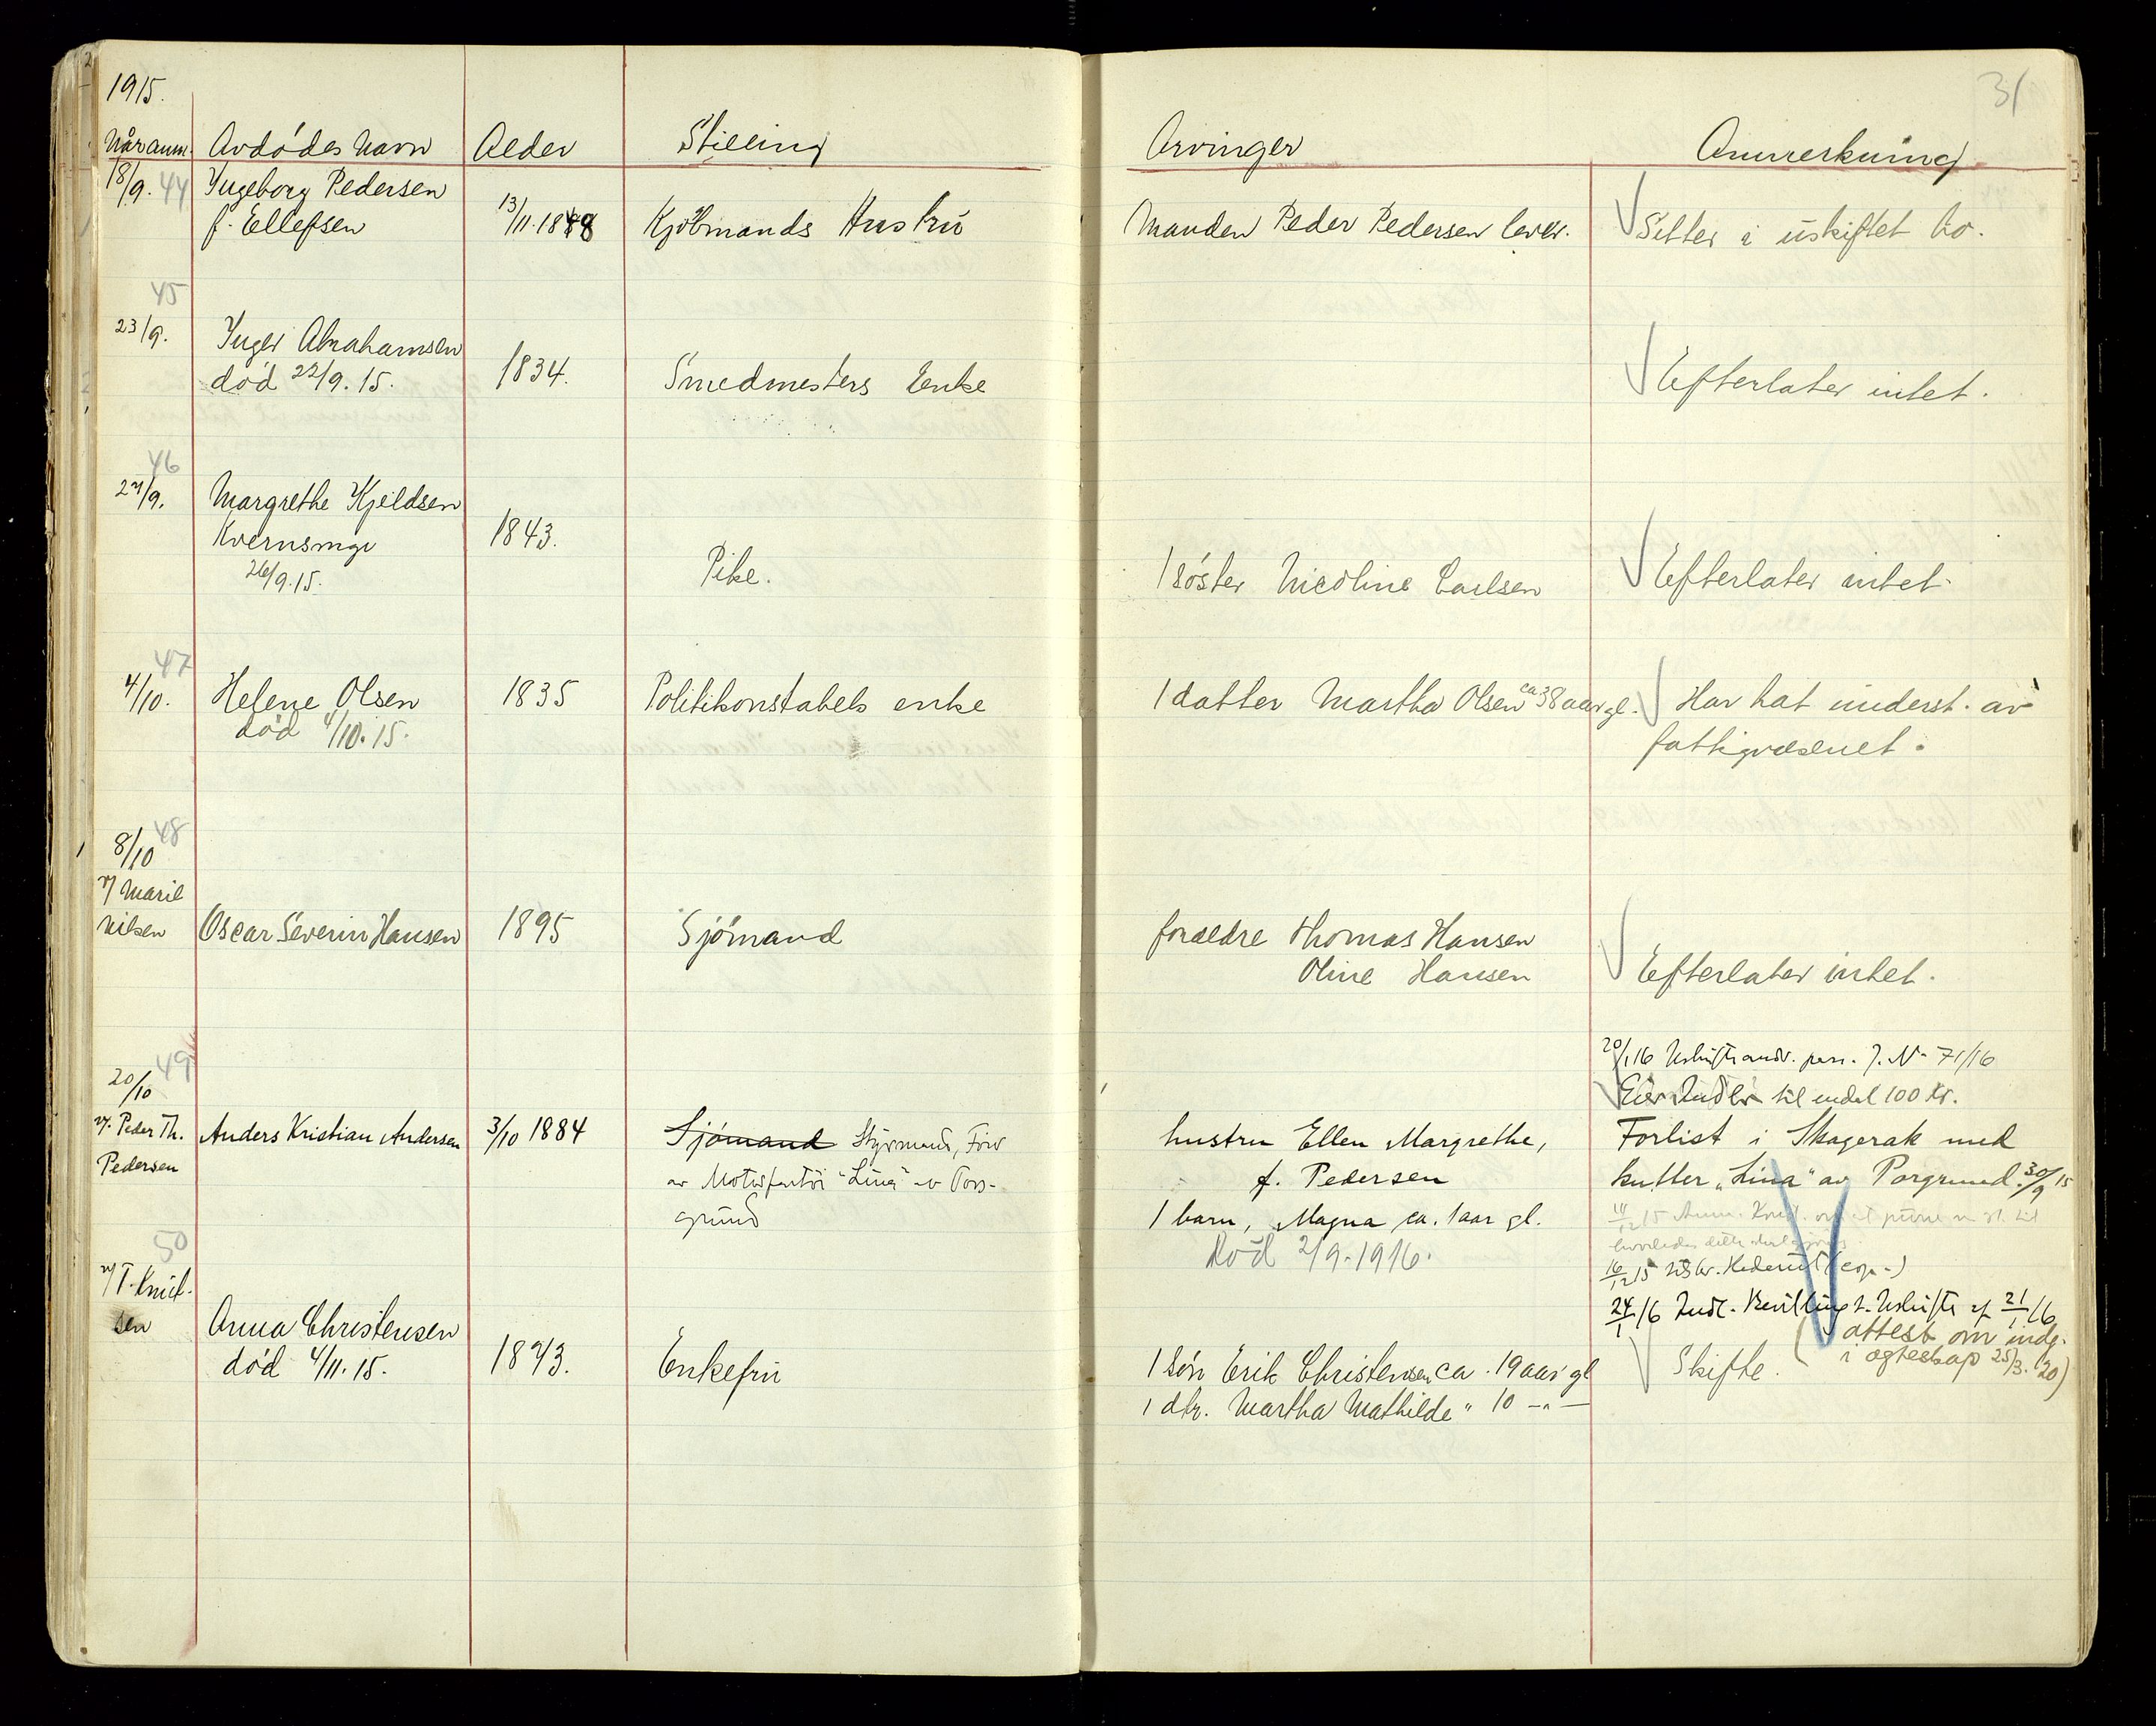 1915.
31
Når anm. Avdödes Navn Alder Stilling Arvinger Anmerkning
18/9. 44 Ingeborg Pedersen
f. Ellefsen 13/11.1848 Kjöbmands Hustru Manden Peder Pedersen lever. Sitter i uskiftet bo.
45
23/9. Inger Abrahamsen
död 22/9. 15. 1834. Smedmesters Enke Efterlater intet.
46
27/9. Margrethe Kjeldsen
Kvernsmyr 1843.
26/9.15. Pike. 1 söster Nicoline Carlsen Efterlater intet.
47
4/10. Helene Olsen 1835 Politikonstabels enke 1 datter Martha Olsen ca 38 aar gl. Har hat underst. av
död 4/10. 15. fattigvæsenet.
48
8/10
v/ Maril
Nilsen Oscar Severin Hansen 1895 Sjömand forældre Thomas Hansen
Oline Hansen Efterlater intet.
49
20/10
v/. Peder Th. Anders Kristian Andersen 3/10 1884 Sjömand Styrmand, Förer
Pedersen av Motorfartöi "Lina" av Pors-
grund
hustru Ellen Margrethe,
f. Pedersen
1 barn, Magna ca. 1 aar gl.
Död 2/9-1916.
20/1 16 Uskifteandr. J. No 71/16
til endel 100 Kr.
Forlist i Skagerak med
kutter "Lina" av Porsgrund. 30/9 15
16/12 15
24/1 16 Uskifte af 21/1 16
(attest om indg.
i ægteskap 25/3. 20)
50
v/ T. Knut-
sen Anna Christensen
död 4/11. 15. 1873. Enkefru 1 sön Erik Christensen ca. 19 aar gl Skifte.
1 dtr. Martha Mathilde " 10 -"-